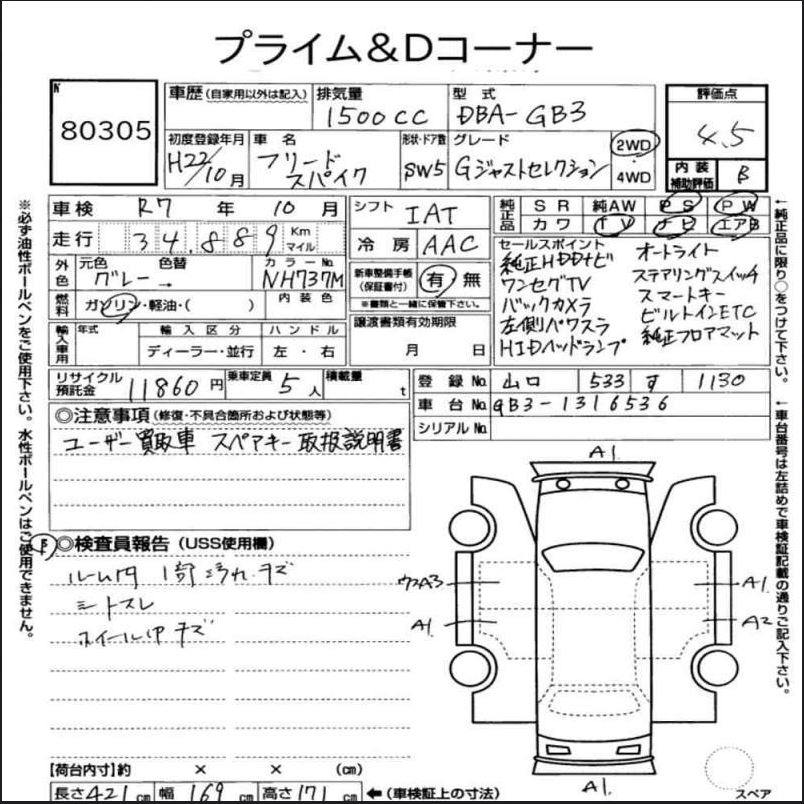 プライム&Dコーナー
№
80305
車歴 (自家用以外は記入)
排気量
1500CC
型式
DBA-GB3
評価点
4.5
初度登録年月
H22/10月
車名
フリード
スパイク
形状・ドア数
SW5
グレード
Gジャストセレクション
2WD
4WD
内装
補助評価
B
車検 R7年 10月
走行 34,889 Km
マイル
シフト IAT
冷房 AAC
純正品
SR 純AW PS PW
カワ TV ナビ エアB
外色
元色 色替
グレー →
カラーNo
NH737M
燃料
ガソリン・軽油・( )
内装色
新車整備手帳
(保証書付)
有 無
※書類と一緒に保管下さい。
セールスポイント
純正HDDナビ
ワンセグTV
バックカメラ
左側パワスラ
HIDヘッドランプ
オートライト
ステアリングスイッチ
スマートキー
ビルトインETC
純正フロアマット
輸入車用
年式
輸入区分
ハンドル
ディーラー・並行
左・右
譲渡書類有効期限
月 日
リサイクル
預託金
11860円
乗車定員
5人
積載量
t
登録№ 山口 533 す 1130
車台№ GB3-1316536
シリアル№
◎注意事項 (修復・不具合箇所および状態等)
ユーザー買取車 スペアキー 取扱説明書
◎検査員報告 (USS使用欄)
ルーム内 1部汚れ.キズ
シートスレ
ホイール中キズ
A1.
A1.
A2
A1.
A1.
【荷台内寸】約 × × (cm)
長さ421cm 幅169cm 高さ171cm ←(車検証上の寸法)
スペア
※必ず油性ボールペンをご使用下さい。水性ボールペンはご使用できません。
←純正品に限り○をつけて下さい。
←車台番号は左詰めで車検証記載の通りご記入下さい。